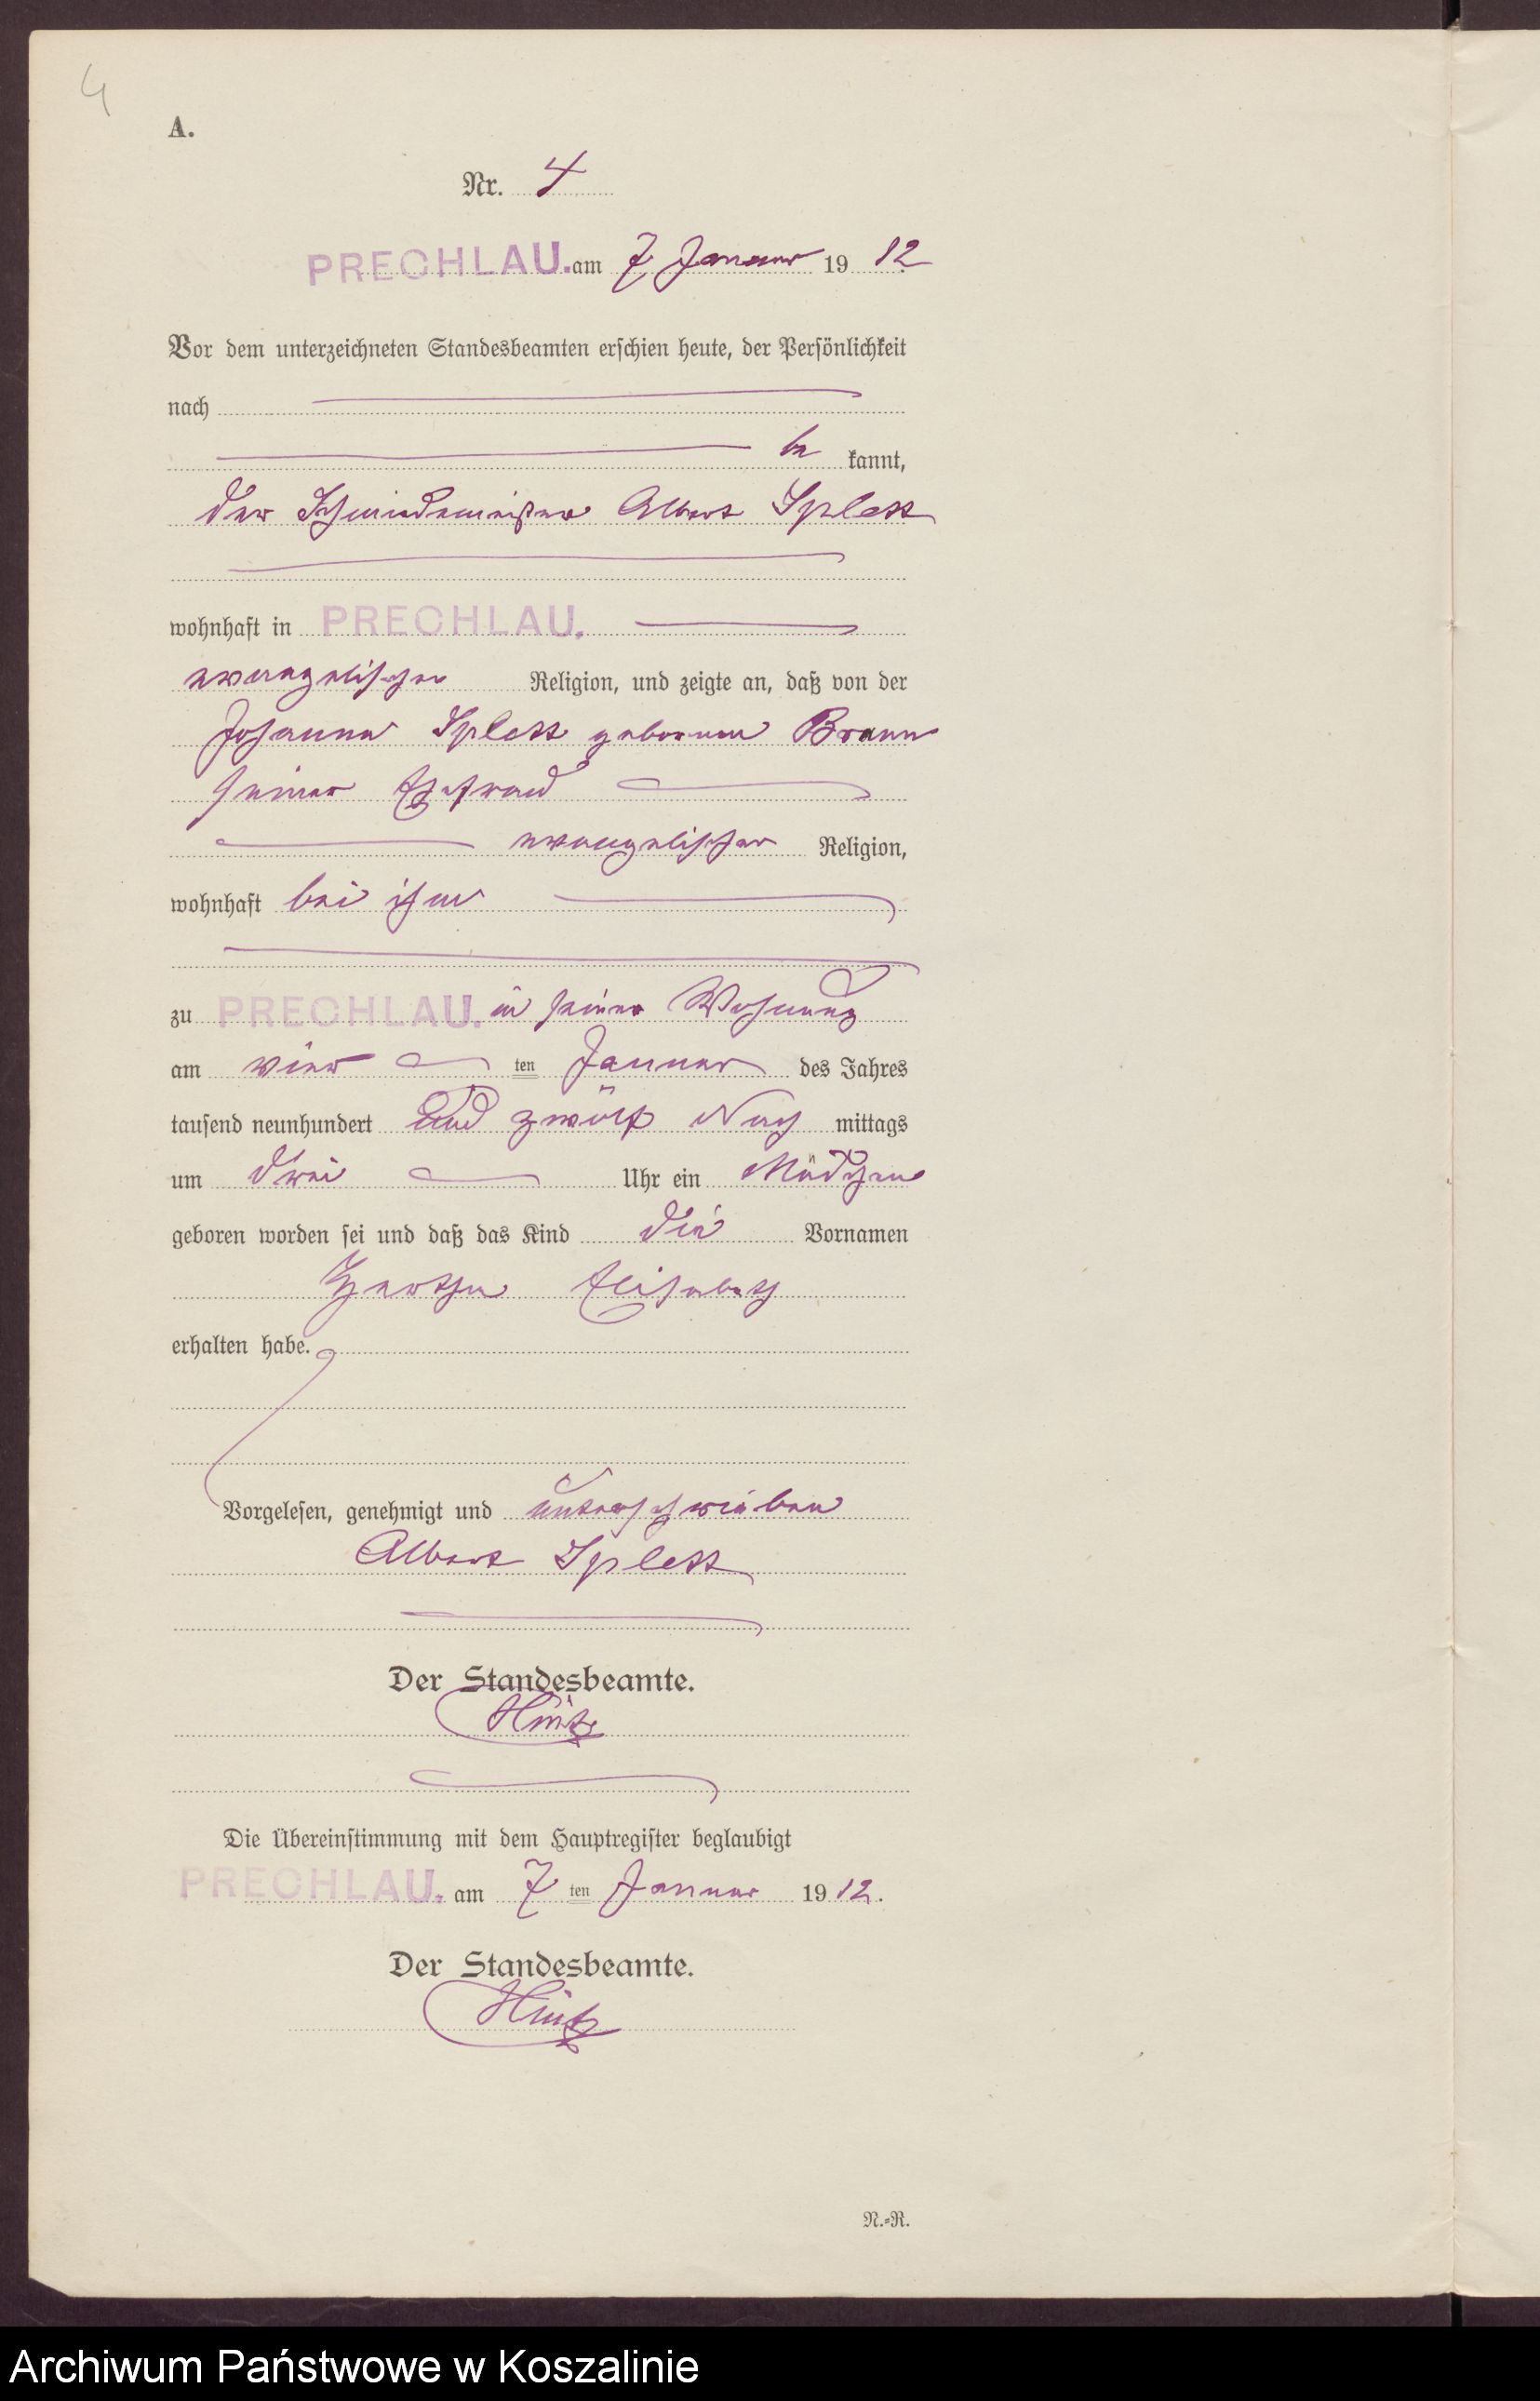 4
A.
Nr. 4
PRECHLAU. am 7 Januar 1912
Vor dem unterzeichneten Standesbeamten erschien heute, der Persönlichkeit
nach
be kannt,
der Schmiedemeister Albert Splett
wohnhaft in PRECHLAU.
evangelischer Religion, und zeigte an, daß von der
Johanna Splett geborenen Braun
seiner Ehefrau
evangelischer Religion,
wohnhaft bei ihm
zu PRECHLAU. in seiner Wohnung
am vier ten Januar des Jahres
tausend neunhundert und zwölf Nach mittags
um drei Uhr ein Mädchen
geboren worden sei und daß das Kind die Vornamen
Hertha Elisabeth
erhalten habe.
Vorgelesen, genehmigt und unterschrieben
Albert Splett
Der Standesbeamte.
Hintz
Die Übereinstimmung mit dem Hauptregister beglaubigt
PRECHLAU. am 7 ten Januar 1912.
Der Standesbeamte.
Hintz
N.=R.
Archiwum Państwowe w Koszalinie